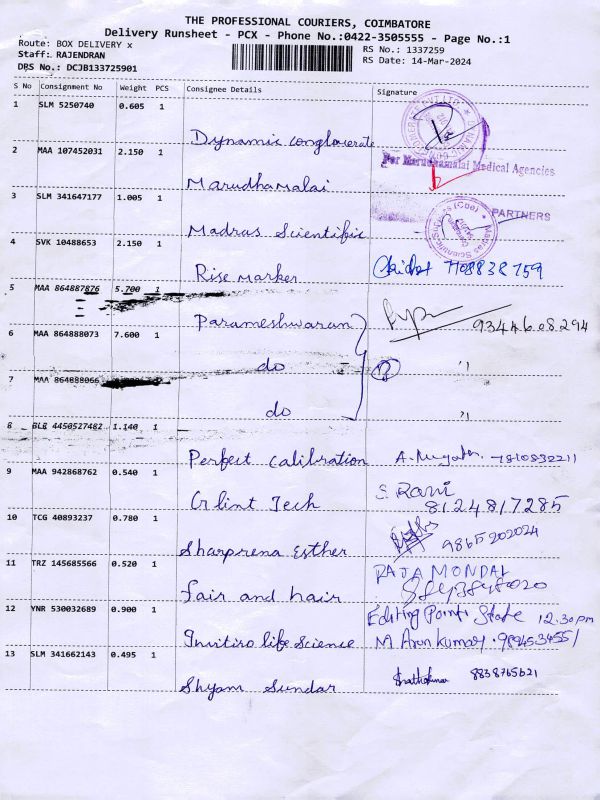 THE PROFESSIONAL COURIERS, COIMBATORE
Delivery Runsheet - PCX - Phone No.:0422-3505555 - Page No.:1
Route: BOX DELIVERY x
RS No.: 1337259
Staff: RAJENDRAN
RS Date: 14-Mar-2024
DRS No.: DCJB133725901
S No Consignment No Weight PCS Consignee Details Signature
1 SLM 5250740 0.605 1
Dynamic conglomerate
2 MAA 107452031 2.150 1
For Marudhamalai Medical Agencies
Marudhamalai
3 SLM 341647177 1.005 1
PARTNERS
Madras Scientific
4 SVK 10488653 2.150 1
Rise Marker
5 MAA 864887876 5.700 1
Parameshwaran
6 MAA 864888073 7.600 1
do "
7 MAA 864888066
do "
8 BLR 4450527482 1.140 1
Perfect calibration
9 MAA 942868762 0.540 1
Glint Tech
S. Rani
8124817285
10 TCG 40893237 0.780 1
Sharprena Esther 9865202024
11 TRZ 145685566 0.520 1
RAJA MONDAL
fair and hair
12 YNR 530032689 0.900 1
Editing Point State 12.30pm
Invitiro life Science M. Arun kumar.
13 SLM 341662143 0.495 1
8838765621
Shyam Sundar